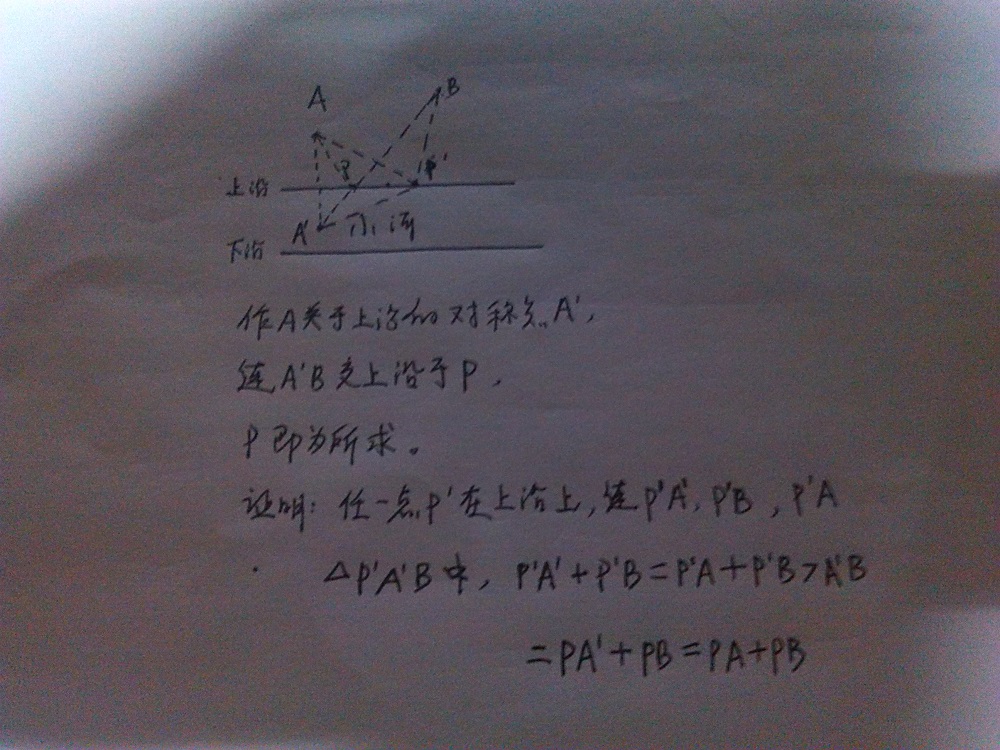 A
B
P
P'
上沿
A'
水流
下沿
作A关于上沿的对称点A',
连A'B交上沿于P,
P即为所求。
证明:任一点P'在上沿上,连P'A',P'B,P'A
△P'A'B中, P'A'+P'B=P'A+P'B>A'B
=PA'+PB=PA+PB